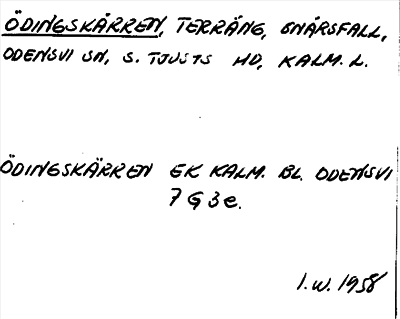 ÖDINGSKÄRREN, TERRÄNG, GNÅRSFALL,
ODENSVI SN, S. TJUSTS HD, KALM. L.
ÖDINGSKÄRREN EK KALM. BL. ODENSVI
7 G 3 e.
I. W. 1958